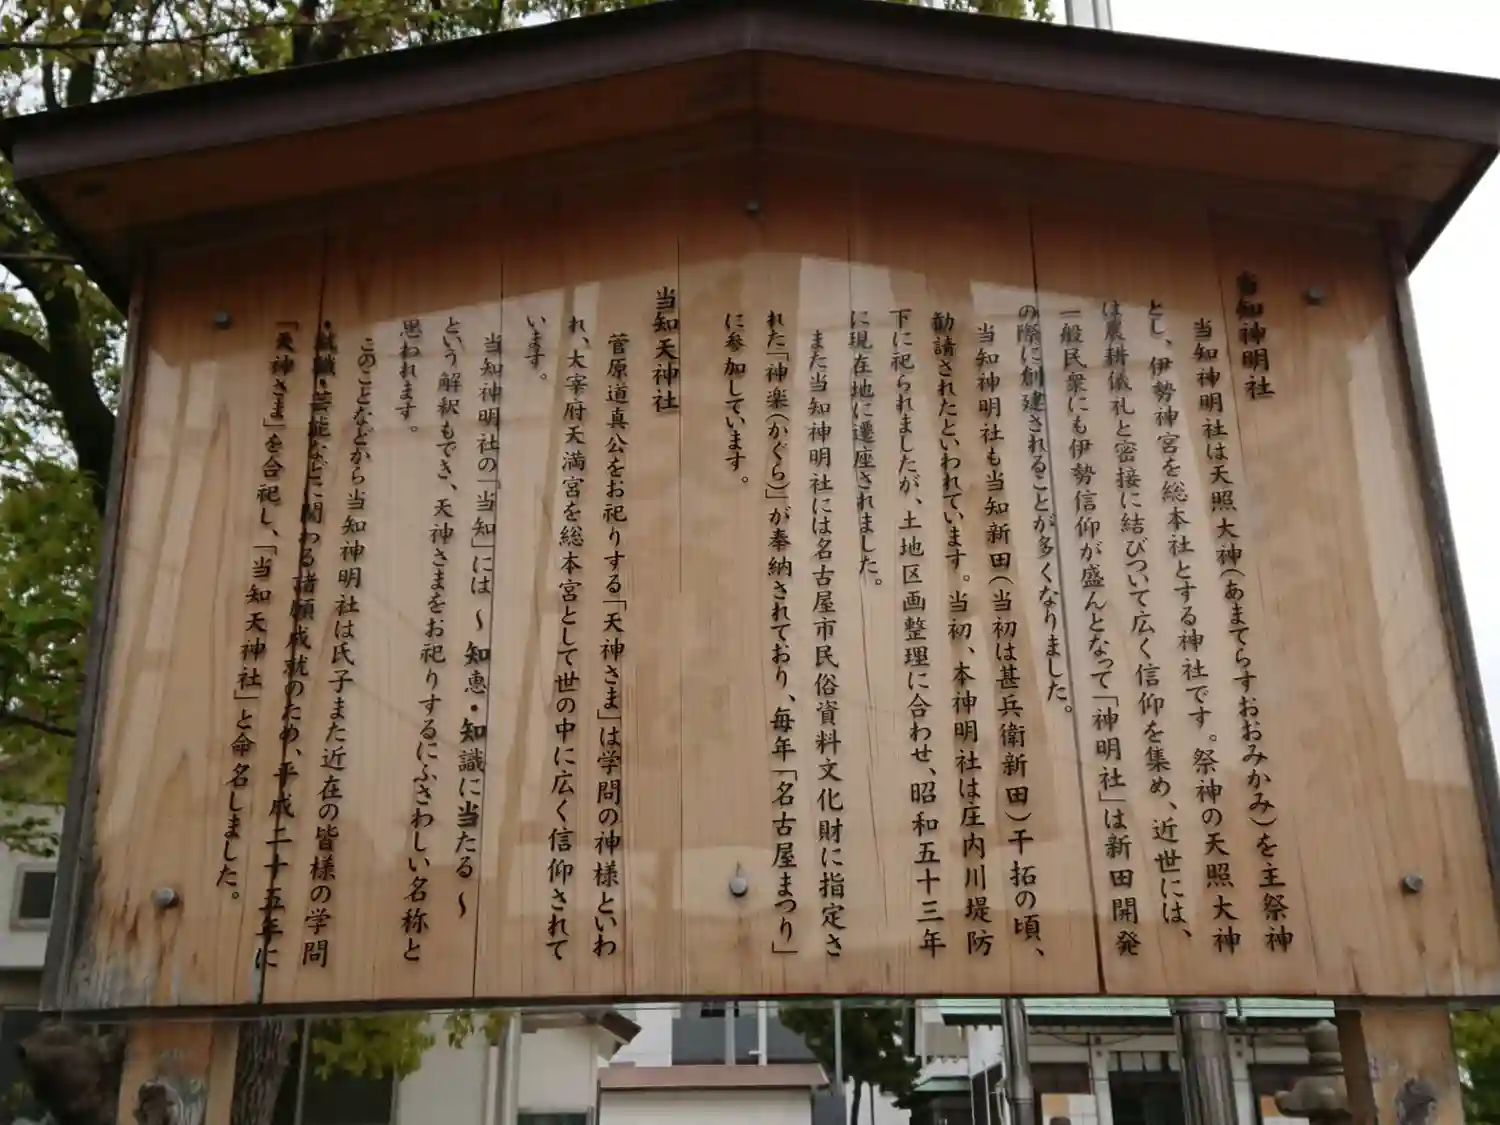 当知神明社
当知神明社は天照大神（あまてらすおおみかみ）を主祭神
とし、伊勢神宮を総本社とする神社です。祭神の天照大神
は農耕儀礼と密接に結びついて広く信仰を集め、近世には、
一般民衆にも伊勢信仰が盛んとなって「神明社」は新田開発
の際に創建されることが多くなりました。
当知神明社も当知新田（当初は甚兵衛新田）干拓の頃、
勧請されたといわれています。当初、本神明社は庄内川堤防
下に祀られましたが、土地区画整理に合わせ、昭和五十三年
に現在地に遷座されました。
また当知神明社には名古屋市民俗資料文化財に指定さ
れた「神楽（かぐら）」が奉納されており、毎年「名古屋まつり」
に参加しています。
当知天神社
菅原道真公をお祀りする「天神さま」は学問の神様といわ
れ、大宰府天満宮を総本宮として世の中に広く信仰されて
います。
当知神明社の「当知」には ～ 知恵・知識に当たる ～
という解釈もでき、天神さまをお祀りするにふさわしい名称と
思われます。
このことなどから当知神明社は氏子また近在の皆様の学問
・就職・芸能などに関わる諸願成就のため、平成二十五年に
「天神さま」を合祀し、「当知天神社」と命名しました。